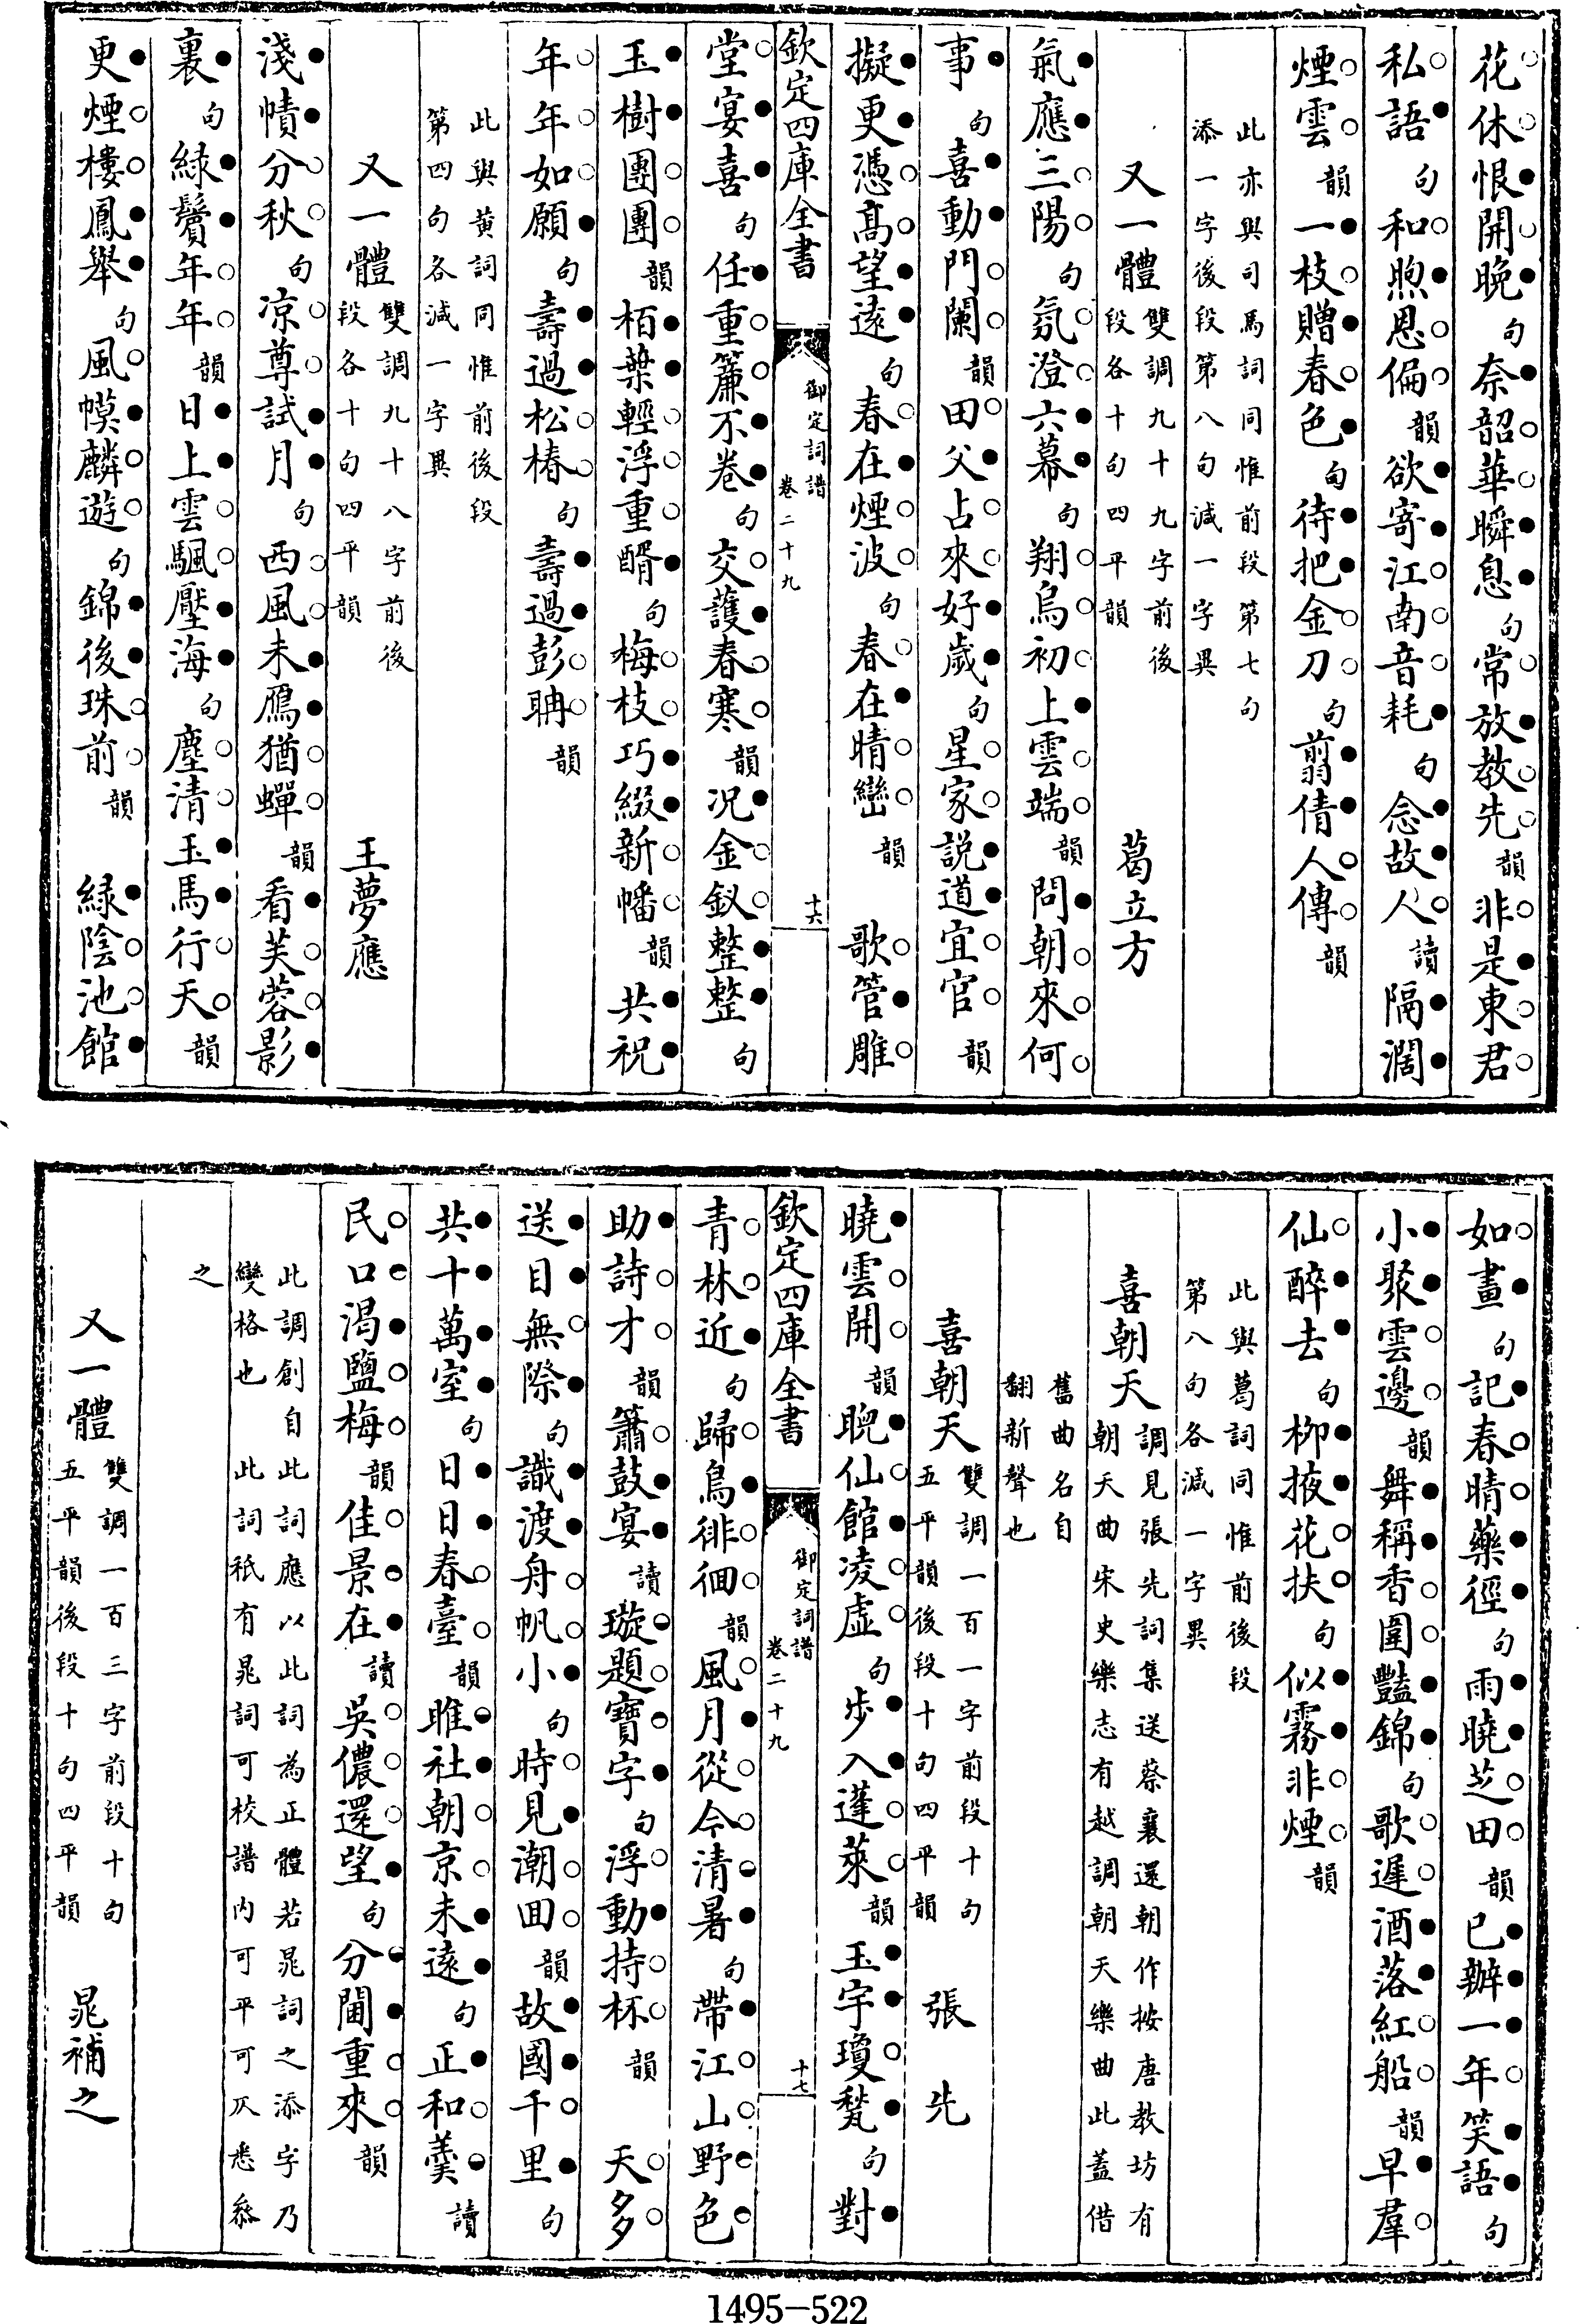 花休恨開晚句奈韶華瞬息句常放教先韻非是東君
私語句和煦恩偏韻欲寄江南音耗句念故人讀隔濶
煙雲韻一枝贈春色句待把金刀句翦倩人傳韻
此亦與司馬詞同惟前段第七句
添一字後段第八句減一字異
又一體雙調九十九字前後
段各十句四平韻葛立方
氣應三陽句氛澄六幕句翔烏初上雲端韻問朝來何
事句喜動門闌韻田父占來好歲句星家説道宜官韻
擬更憑高望遠句春在煙波句春在晴巒韻歌管雕
欽定四庫全書御定詞譜卷二十九十六
堂宴喜句任重簾不卷句交護春寒韻况金釵整整句
玉樹團團韻栢葉輕浮重醑句梅枝巧綴新幡韻共祝
年年如願句壽過松椿句壽過彭聃韻
此與黄詞同惟前後段
第四句各減一字異
又一體雙調九十八字前後
段各十句四平韻王夢應
淺幘分秋句凉尊試月句西風未鴈猶蟬韻看芙蓉影
裏句緑鬢年年韻日上雲颿壓海句塵清玉馬行天韻
更煙樓鳳舉句風幙麟遊句錦後珠前韻緑陰池館
如畫句記春晴藥徑句雨曉芝田韻已辦一年笑語句
小聚雲邊韻舞稱香圍豔錦句歌遲酒落紅船韻早羣
仙醉去句柳掖花扶句似霧非煙韻
此與葛詞同惟前後段
第八句各減一字異
喜朝天調見張先詞集送蔡襄還朝作按唐教坊有
朝天曲宋史樂志有越調朝天樂曲此蓋借
舊曲名自
翻新聲也
喜朝天雙調一百一字前段十句
五平韻後段十句四平韻張先
曉雲開韻睨仙館凌虚句步入蓬萊韻玉宇瓊甃句對
欽定四庫全書御定詞譜卷二十九十七
青林近句歸鳥徘徊韻風月從今清暑句帶江山野色
助詩才韻簫鼓宴讀璇題寶字句浮動持杯韻天多
送目無際句識渡舟帆小句時見潮囬韻故國千里句
共十萬室句日日春臺韻睢社朝京未遠句正和羹讀
民口渴鹽梅韻佳景在讀吳儂還望句分閫重來韻
此調創自此詞應以此詞為正體若晁詞之添字乃
變格也此詞祇有晁詞可校譜内可平可仄悉叅
之
又一體雙調一百三字前段十句
五平韻後段十句四平韻晁補之
1495-522